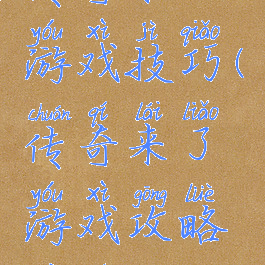 yóu xì jì qiǎo
游戏技巧(
chuán qí lái liǎo
传奇来了
yóu xì gōng lüè
游戏攻略